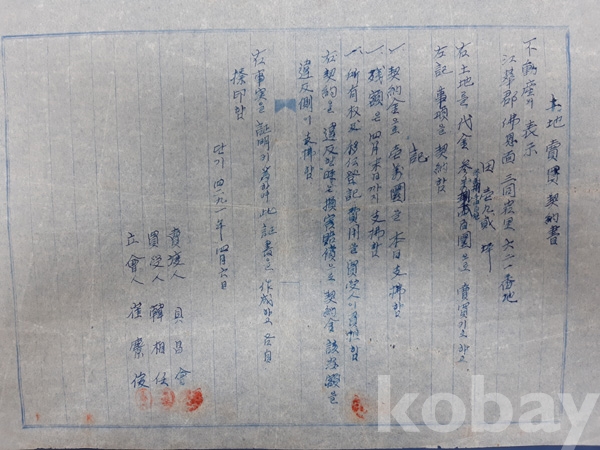 土地賣買契約書
不動産의 表示
江華郡佛恩面三同岩里六二一番地
田 壱九弐 坪
右土地를 代金 百圜으로 賣買키로 하고
左記 事項을 契約함
記
一、契約金으로 壱萬圜을 本日 支拂함
一、残額은 四月末日까지 支拂함
一、所有权 登記 費用은 買受人이 함
右契約을 違反할 時는 損害賠償으로 契約金 該当額을
違反側이 支拂함
右事実을 証明키 爲하야 此証書를 作成하고 各自
捺印함
단기 四二九一年 四月 六日
賣渡人 具昌會
買受人 韓相
立會人 崔 俊
kobay